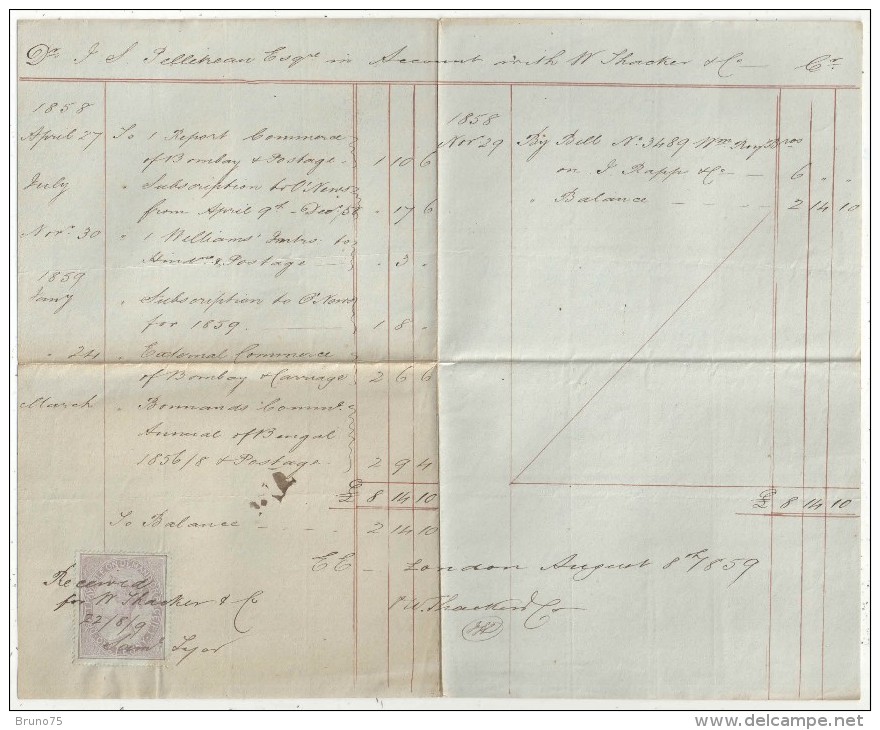 Dr. J S. Pellereau Esqre in Account with W Thacker & Co Cr.
1858
April 27 To 1 Report Commerce
of Bombay & Postage 1 10 6
July " Subscription to O'News
from April 9th - Decr. 58 " 17 6
Novr. 30 " 1 Williams' Intro. to
Hind. & Postage " 3 "
1859
Jany " Subscription to O'News
for 1859. 1 8 "
" 24 " External Commerce
of Bombay & Carriage 2 6 6
March " Bonnauds Comml.
Annual of Bengal
1856/8 & Postage 2 9 4
£ 8 14 10
To Balance 2 14 10
1858
Nov. 29 By Bill No. 3489 Wm. Roy Bros
on J. Rapp & Co 6 " "
" Balance 2 14 10
£ 8 14 10
EE London August 8th/1859
W. Thacker & Co
Received
for W Thacker & Co
22/8/9
Saml. Tyor
Bruno75
delcampe.net